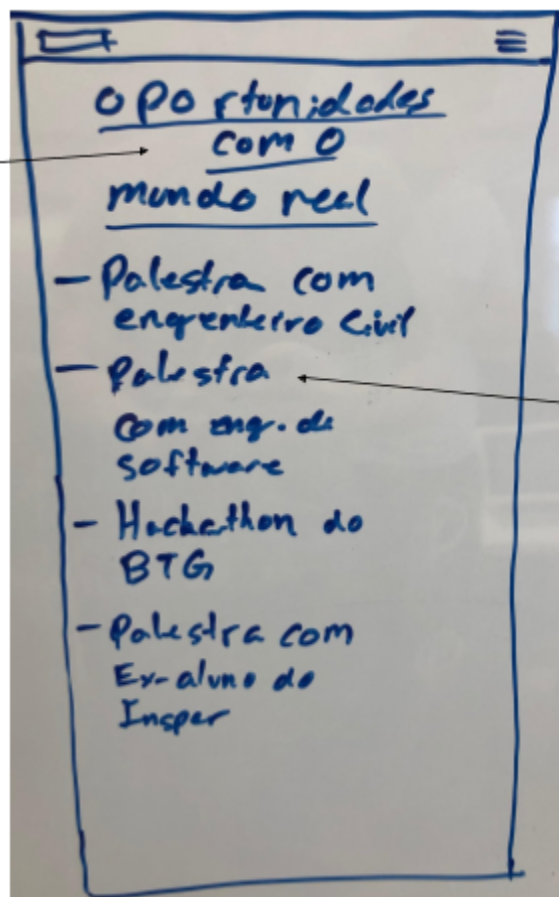 oportunidades
com o
mundo real
- Palestra com
engenheiro Civil
- Palestra
com eng. de
software
- Hackathon do
BTG
- Palestra com
Ex-aluno do
Insper